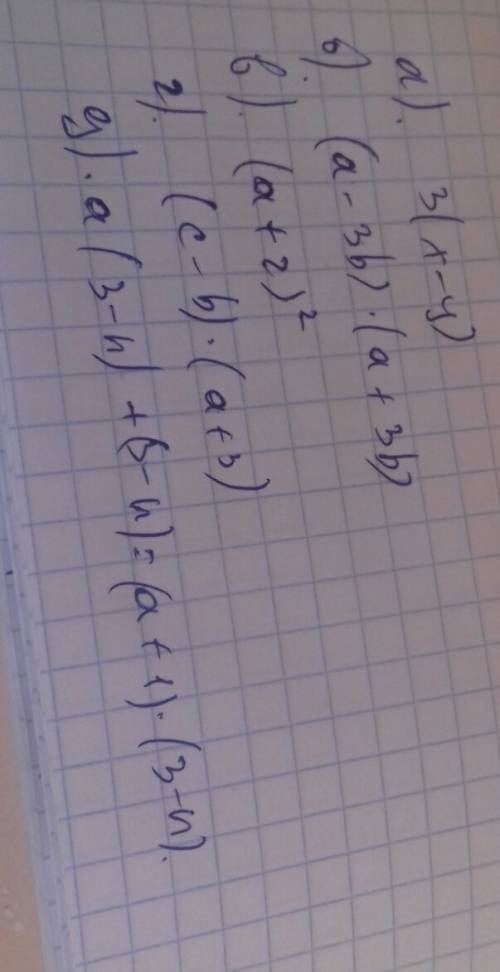 а). 3(x-y)
б). (a-3b)·(a+3b)
в). (a+2)²
г). (c-b)·(a+3)
g). a(3-n)+(3-n)=(a+1)·(3-n).